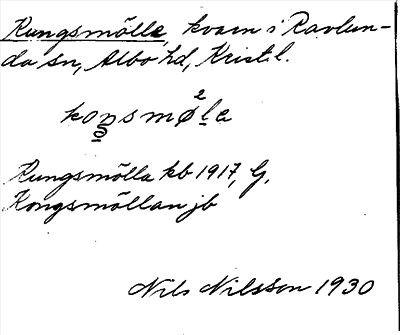 Kungsmölla, kvarn i Ravlun-
da sn, Albo hd, Krist. l.
2
koŋsmøla
Kungsmölla kb 1917, G,
Kongsmöllan jb
Nils Nilsson 1930